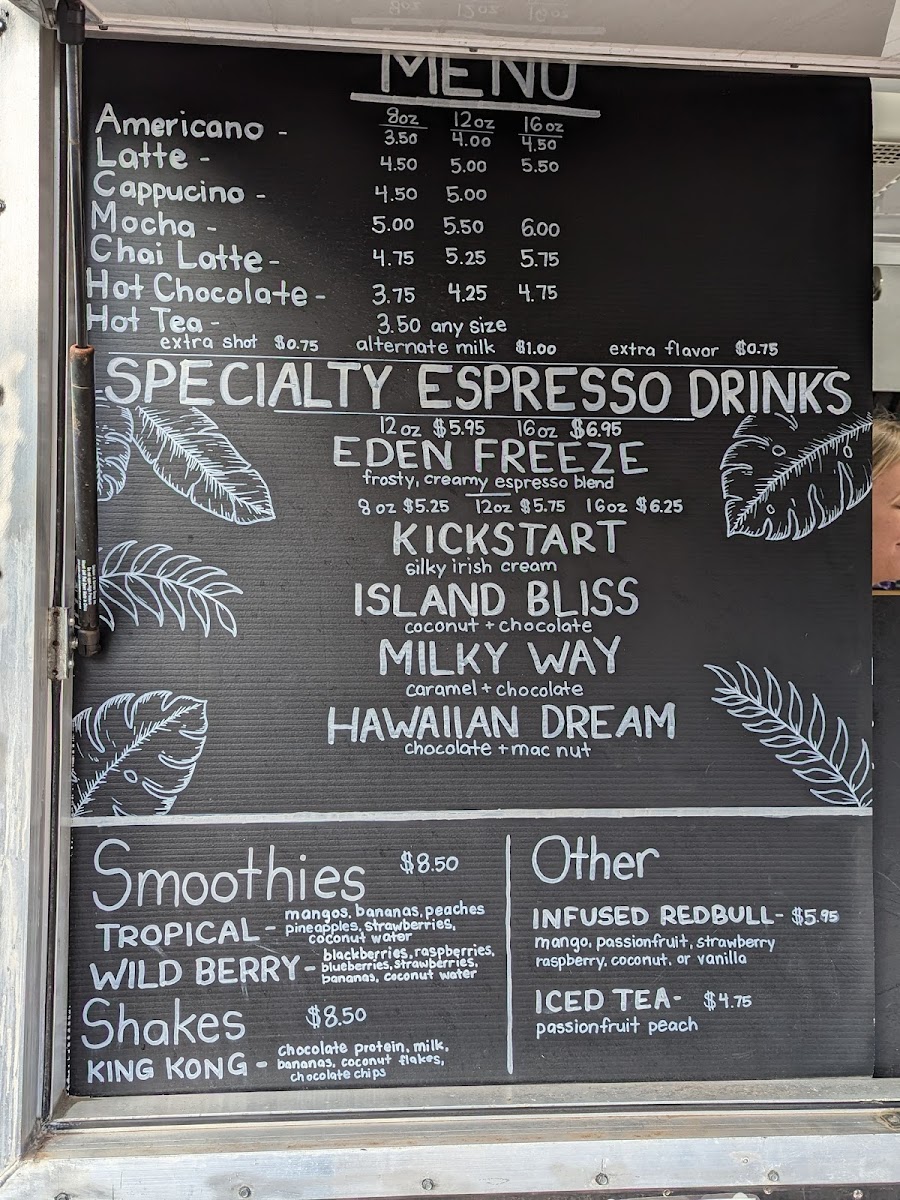 MENU
8oz 12oz 16oz
Americano - 3.50 4.00 4.50
Latte - 4.50 5.00 5.50
Cappucino - 4.50 5.00
Mocha - 5.00 5.50 6.00
Chai Latte - 4.75 5.25 5.75
Hot Chocolate - 3.75 4.25 4.75
Hot Tea - 3.50 any size
extra shot $0.75 alternate milk $1.00 extra flavor $0.75
SPECIALTY ESPRESSO DRINKS
12oz $5.95 16oz $6.95
EDEN FREEZE
frosty, creamy espresso blend
8oz $5.25 12oz $5.75 16oz $6.25
KICKSTART
silky irish cream
ISLAND BLISS
coconut + chocolate
MILKY WAY
caramel + chocolate
HAWAIIAN DREAM
chocolate + mac nut
Smoothies $8.50
TROPICAL - mangos, bananas, peaches
pineapples, strawberries,
coconut water
WILD BERRY - blackberries, raspberries,
blueberries, strawberries,
bananas, coconut water
Shakes $8.50
KING KONG - chocolate protein, milk,
bananas, coconut flakes,
chocolate chips
Other
INFUSED REDBULL - $5.95
mango, passionfruit, strawberry
raspberry, coconut, or vanilla
ICED TEA - $4.75
passionfruit peach